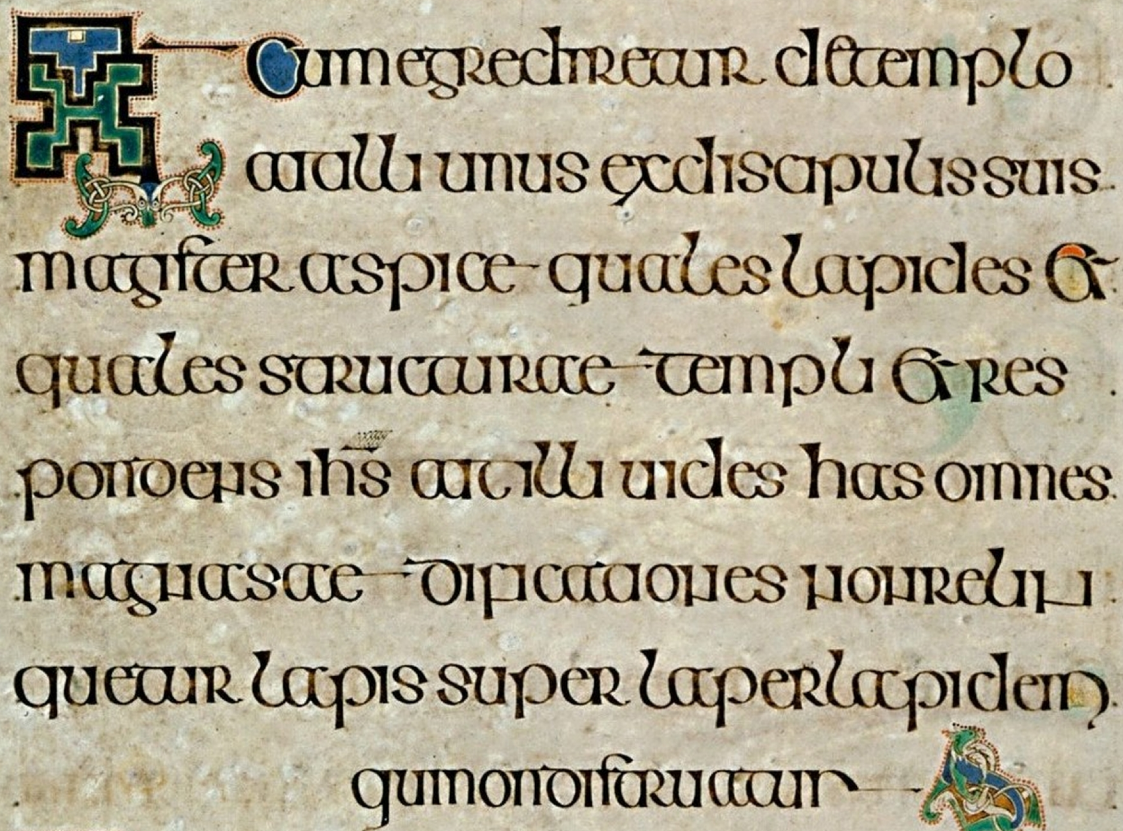 Et Cumegrediretur detemplo
aitilli unus exdiscipulis suis
magister aspice quales lapides &
quales structurae templi & res
pondens ihs aitilli uides has omnes
magnasae dificationes nonrelin
quetur lapis super laperlapidem
quinondistruatur